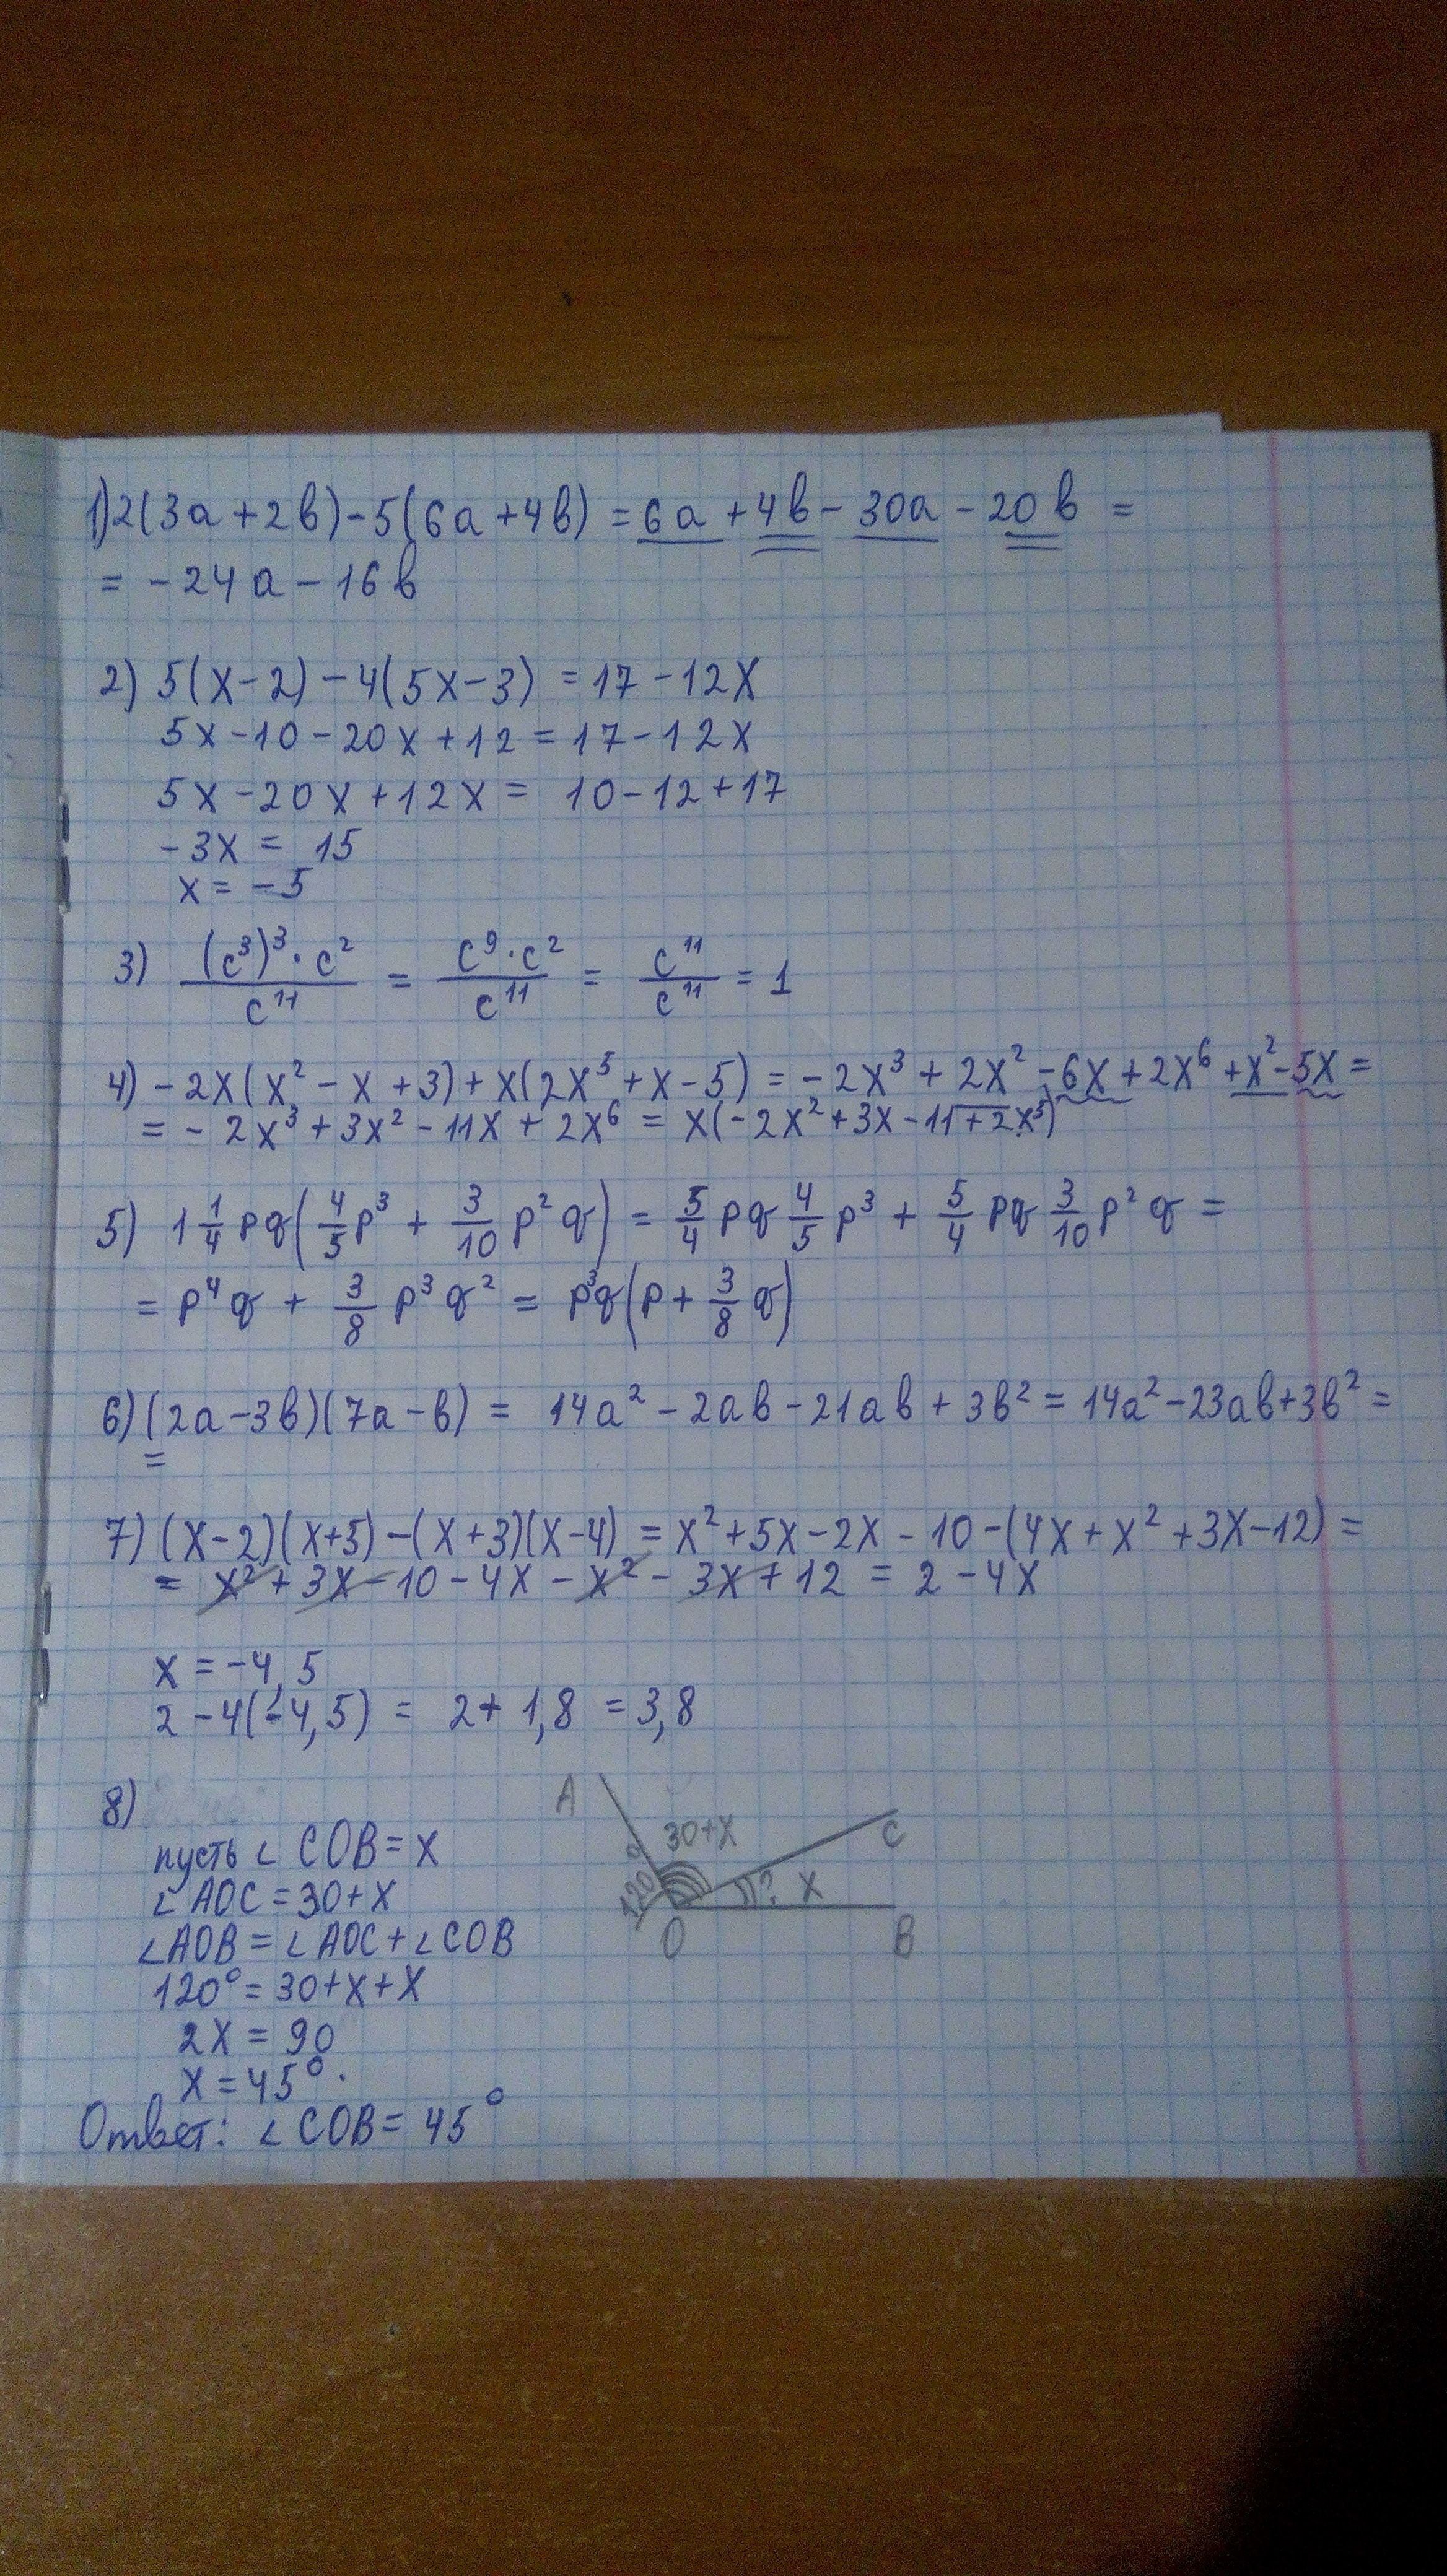 1) 2(3a+2b)-5(6a+4b) = 6a+4b-30a-20b =
= -24a-16b
2) 5(x-2)-4(5x-3) = 17-12x
5x-10-20x+12 = 17-12x
5x-20x+12x = 10-12+17
-3x = 15
x = -5
3) (c³)³·c²/c¹¹ = c⁹·c²/c¹¹ = c¹¹/c¹¹ = 1
4) -2x(x²-x+3)+x(2x⁵+x-5) = -2x³+2x²-6x+2x⁶+x²-5x =
= -2x³+3x²-11x+2x⁶ = x(-2x²+3x-11+2x⁵)
5) 1 1/4 pq(4/5 p³ + 3/10 p²q) = 5/4 pq 4/5 p³ + 5/4 pq 3/10 p²q =
= p⁴q + 3/8 p³q² = p³q(p + 3/8 q)
6) (2a-3b)(7a-b) = 14a²-2ab-21ab+3b² = 14a²-23ab+3b² =
=
7) (x-2)(x+5)-(x+3)(x-4) = x²+5x-2x-10-(4x+x²+3x-12) =
= x²+3x-10-4x-x²-3x+12 = 2-4x
x = -4,5
2-4(-4,5) = 2+1,8 = 3,8
8)
пусть ∠COB = x
∠AOC = 30+x
∠AOB = ∠AOC+∠COB
120° = 30+x+x
2x = 90
x = 45°.
Ответ: ∠COB = 45°
A
30+x
C
120°
? x
O
B